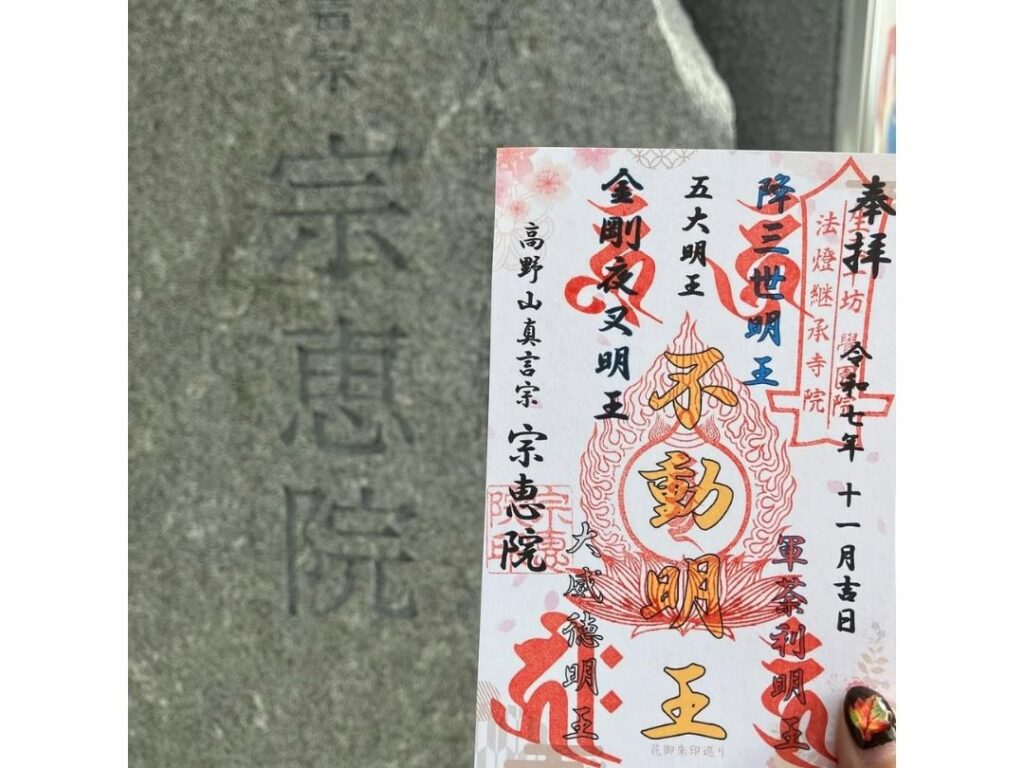 十八
宗恵院
奉拝
令和七年 十一月吉日
法燈継承寺院
降三世明王
軍荼利明王
五大明王
不動明王
金剛夜叉明王
大威徳明王
高野山真言宗 宗恵院
花御朱印巡り